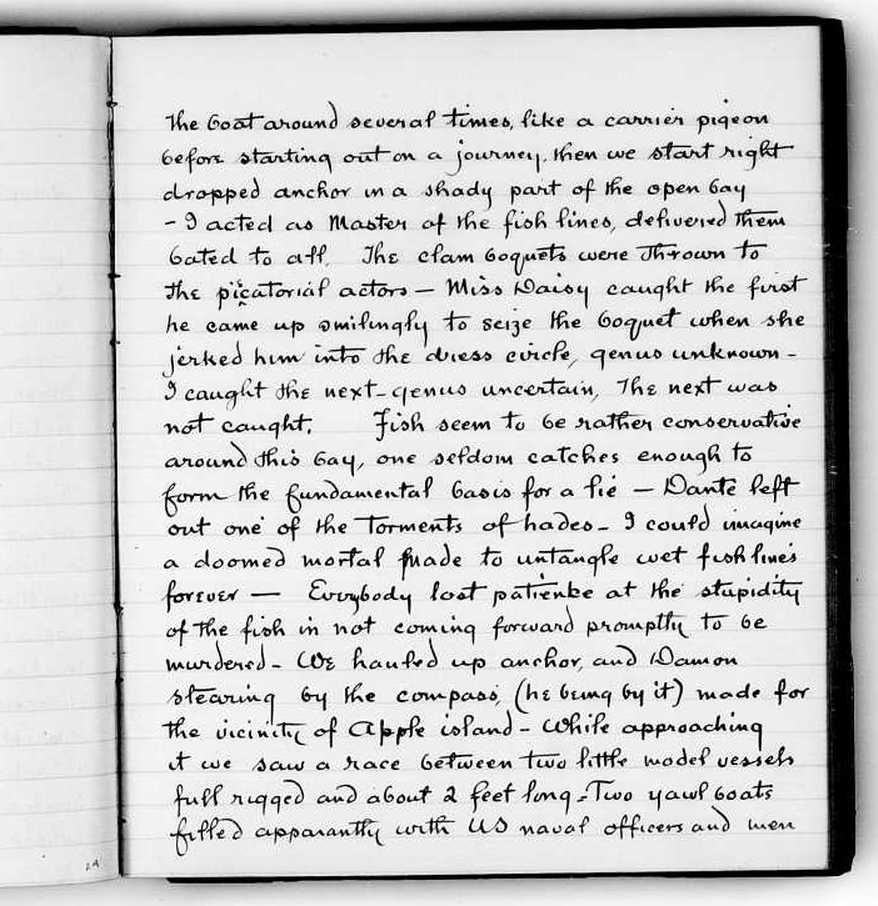 the boat around several times, like a carrier pigeon
before starting out on a journey. then we start right
dropped anchor in a shady part of the open bay
- I acted as Master of the fish lines, delivered them
bated to all. The clam boquets were thrown to
the picatorial actors — Miss Daisy caught the first
he came up smilingly to seize the boquet when she
jerked him into the dress circle, genus unknown -
I caught the next - genus uncertain, The next was
not caught. Fish seem to be rather conservative
around this bay, one seldom catches enough to
form the fundamental basis for a lie — Dante left
out one of the torments of hades - I could imagine
a doomed mortal made to untangle wet fish lines
forever — Everybody lost patience at the stupidity
of the fish in not coming forward promptly to be
murdered - We hauled up anchor, and Damon
stearing by the compass, (he being by it) made for
the vicinity of Apple island - While approaching
it we saw a race between two little model vessels
full rigged and about 2 feet long - Two yawl boats
filled apparantly with US naval officers and men
29